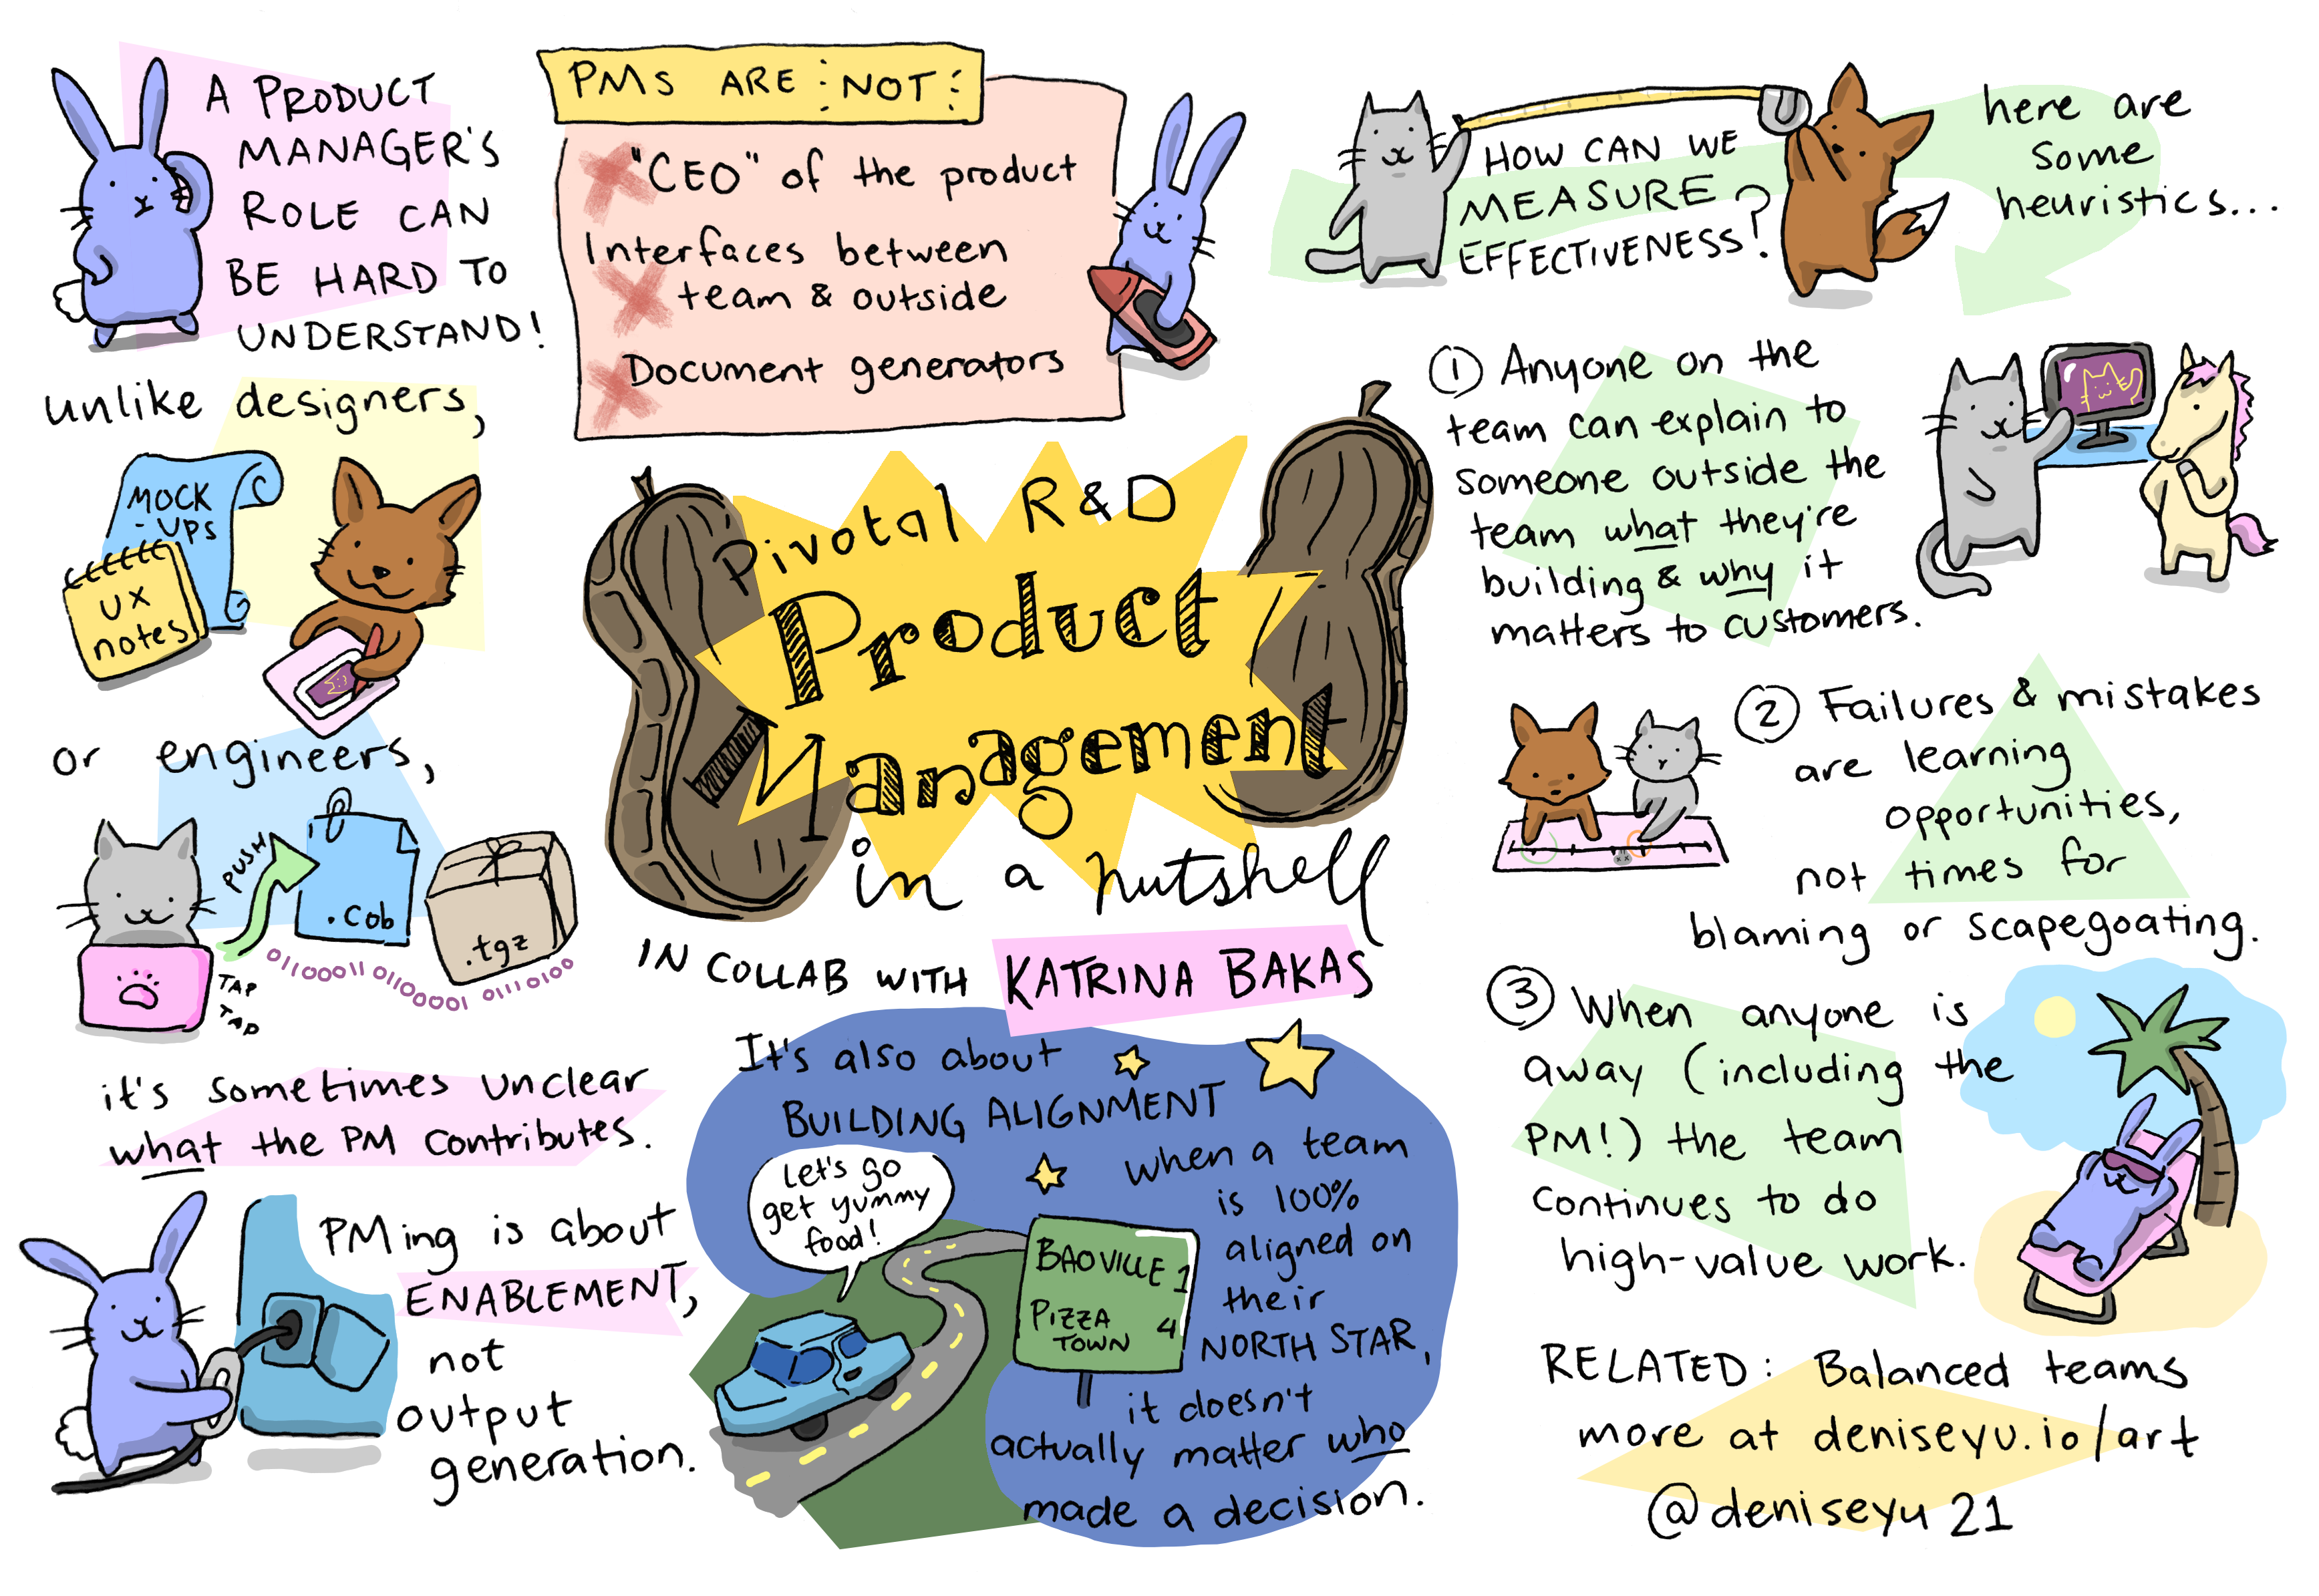 A PRODUCT
MANAGER'S
ROLE CAN
BE HARD TO
UNDERSTAND!
unlike designers,
MOCK
-UPS
UX
notes
or engineers,
PUSH
.cob
.tgz
TAP
TAP
01100011 01100001 01110100
it's sometimes unclear
what the PM contributes.
PMing is about
ENABLEMENT,
not
output
generation.
PMS ARE NOT
"CEO" of the product
Interfaces between
team & outside
Document generators
Pivotal R&D
Product
Management
in a nutshell
IN COLLAB WITH KATRINA BAKAS
It's also about
BUILDING ALIGNMENT
when a team
is 100%
aligned on
their
NORTH STAR,
it doesn't
actually matter who
made a decision.
Let's go
get yummy
food!
BAOVILLE 1
PIZZA
TOWN 4
HOW CAN WE
MEASURE
EFFECTIVENESS?
here are
some
heuristics...
1 Anyone on the
team can explain to
someone outside the
team what they're
building & why it
matters to customers.
2 Failures & mistakes
are learning
opportunities,
not times for
blaming or scapegoating.
3 When anyone is
away (including the
PM!) the team
continues to do
high-value work.
RELATED: Balanced teams
more at deniseyu.io/art
@deniseyu21